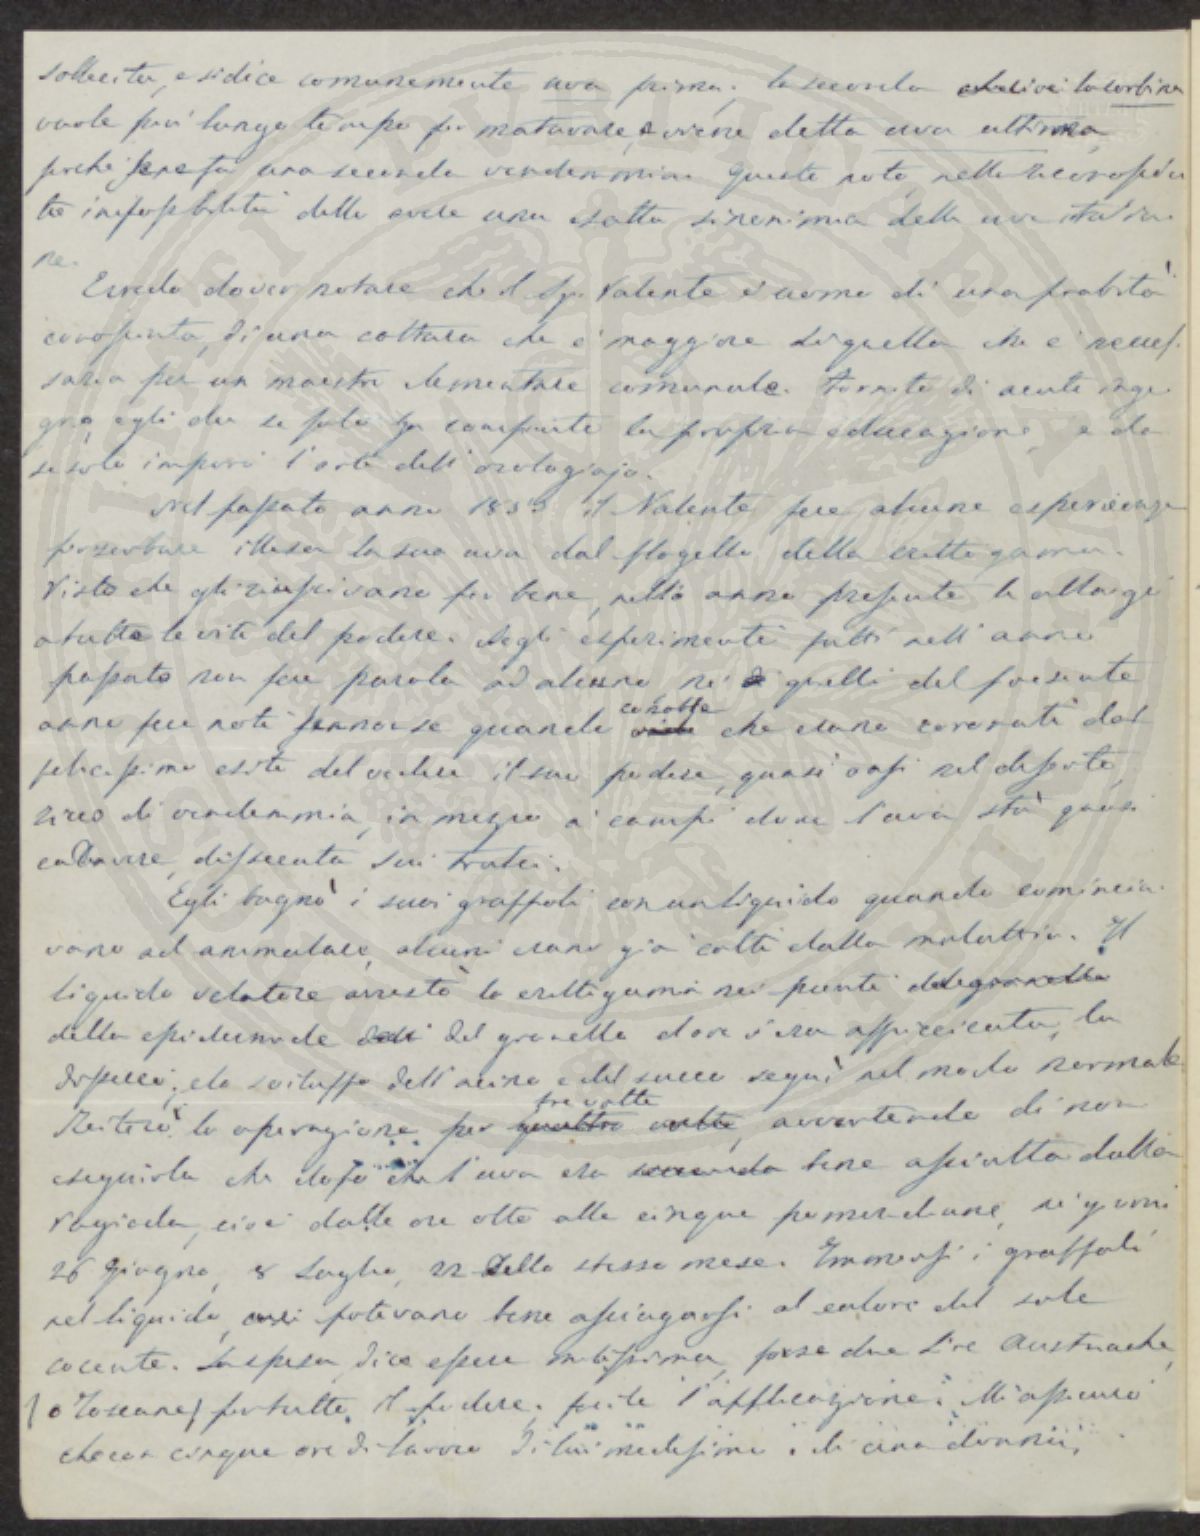 sollecita, e si dice comunemente uva prima; la seconda che si vi la corbina
vuole più lungo tempo per maturare, e viene detta uva ultima,
perché se ne fa una seconda vendemmia. Queste note, nella
impossibilità della avere una esatta sinonimia delle uve italia-
ne.
Credo dover notare che il Sig. Valente è uomo di una probità
conosciuta, di una coltura che è maggiore di quella che è neces-
saria per un maestro elementare comunale. Fornito di acuto inge-
gno, egli da se solo ha compiuto la propria educazione, e da
se solo imparò l'arte dell'orologiajo.
Nel passato anno 1853 il Valente fece alcune esperienze
per serbare illesa la sua uva dal flagello della crittogama.
Visto che gli riuscivano per bene, nello anno presente le allargò
a tutte le viti del podere. Degli esperimenti fatti nell'anno
passato non fece parola ad alcuno, né di quelli del presente
anno fece noti sennonse quando conobbe che erano coronati dal
felicissimo esito del vedere il suo podere, quasi oasi nel deserto,
ricco di vendemmia, in mezzo a' campi dove l'uva stà quasi
cadavere, disseccata sui tralci.
Egli bagnò i suoi grappoli con un liquido quando comincia-
vano ad ammalare, alcuni erano già colti dalla malattia. Il
liquido velatore arrestò la crittogama nei punti del granello
della epidermide del granello dove s'era appiccicata, la
disseccò; e lo sviluppo dell'acino e del succo seguì nel modo normale.
Reiterò la operazione per quattro volte tre volte, avvertendo di non
eseguirla che dopo che l'uva era bene asciutta dalla
rugiada, cioè dalle ore otto alle cinque pomeridiane, nei giorni
26 Giugno, 8 Luglio, 22 dello stesso mese. Immersi i grappoli
nel liquido, essi potevano bene asciugarsi al calore del sole
cocente. La spesa, dice essere minima, forse due lire Austriache,
(o Toscane) per tutto il podere; facile l'applicazione. Mi assicurò
che con cinque ore di lavoro di lui medesimo e di una donna,